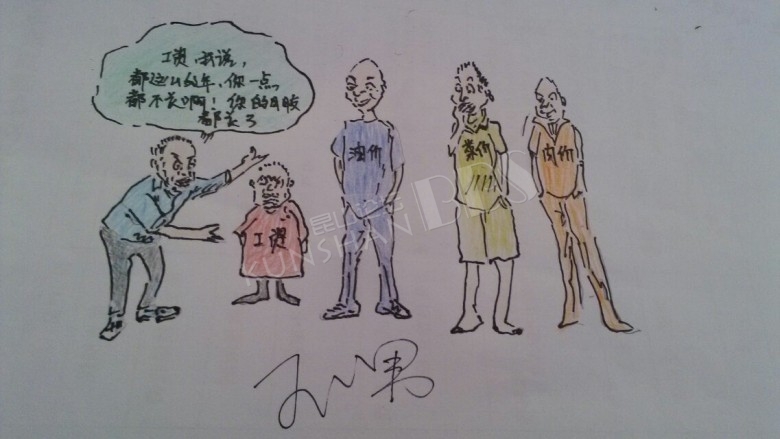 工资,我说,
都这么多年,你一点
都不长啊!你的同胞
都长了
工资
油价
菜价
肉价
昆山论坛
KUNSHAN BBS